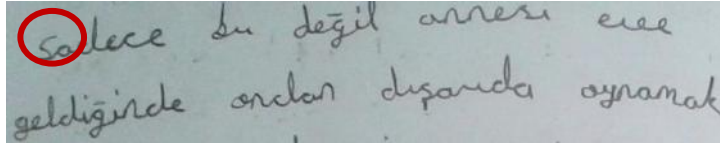 sadece bu değil annesi eve
geldiğinde ondan dışarıda oynamak